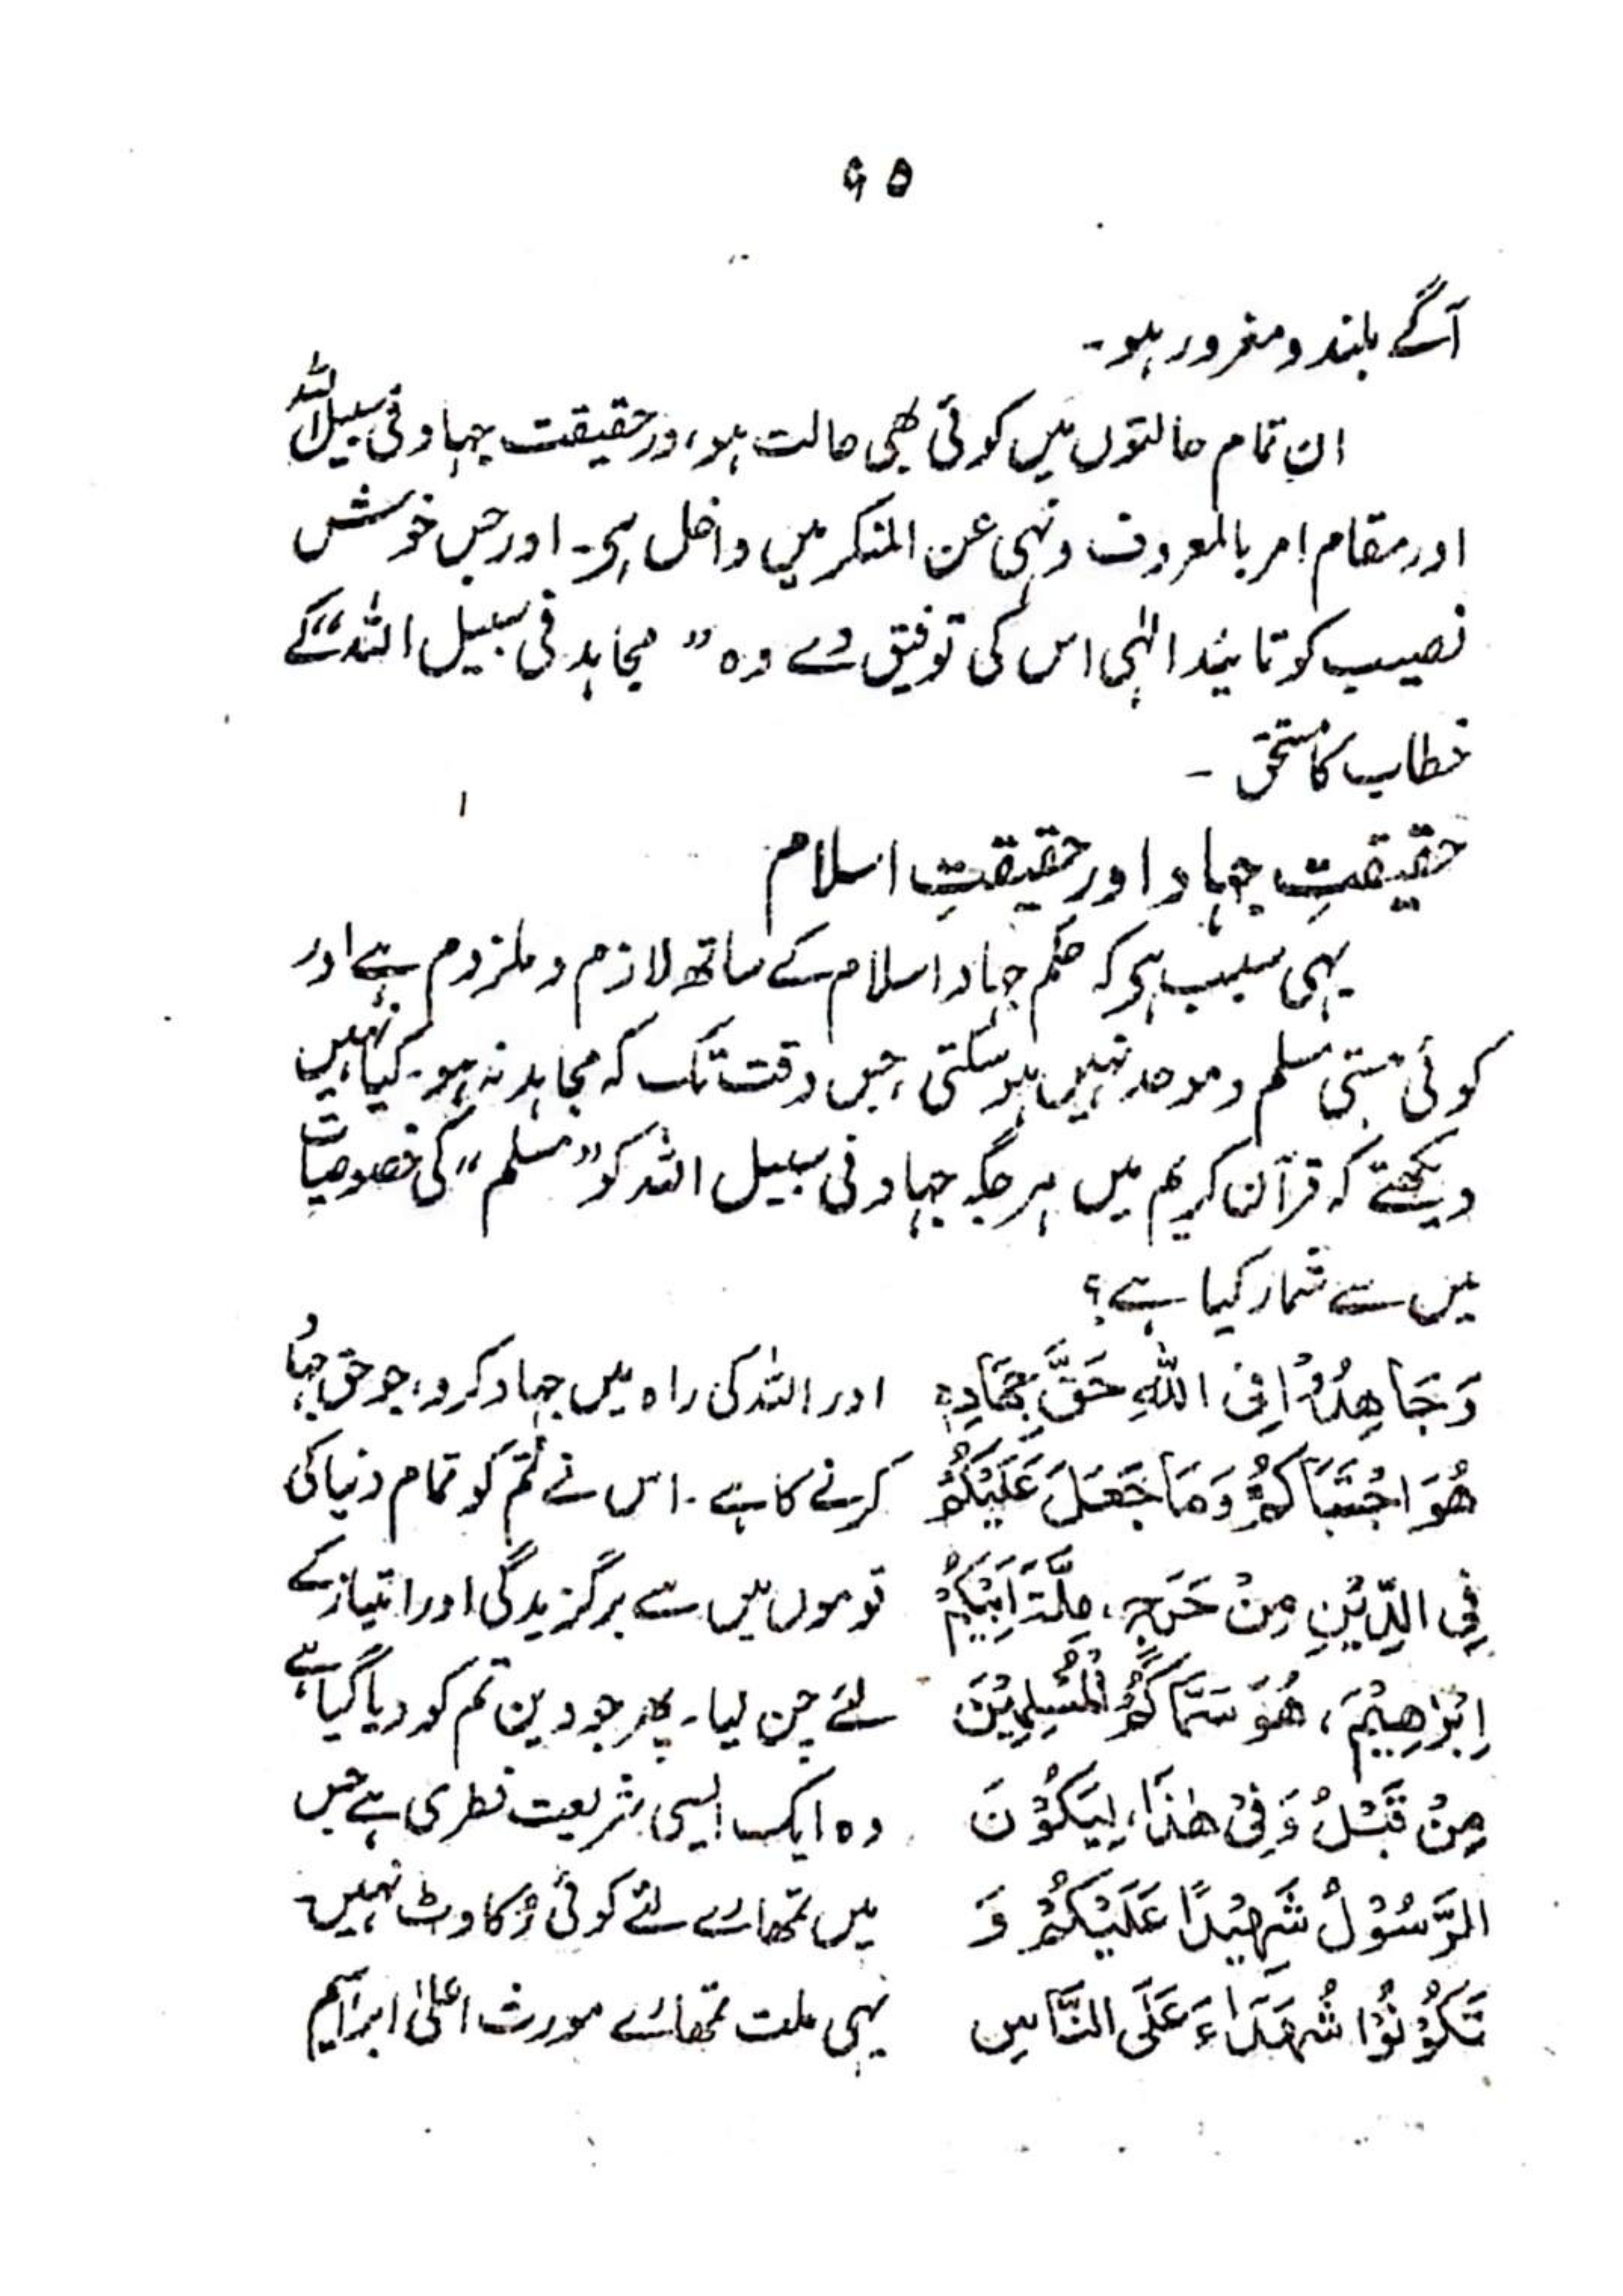 ۹۵
آگے بلند و مغرور ہو۔
ان تمام حالتوں میں کوئی بھی حالت ہو، درحقیقت جہاد فی سبیل اللہ
اور مقام امر بالمعروف و نہی عن المنکر میں داخل ہی۔ اور جس خوش
نصیب کو تائید الٰہی اس کی توفیق دے وہ ”مجاہد فی سبیل اللہ“ کے
خطاب کا مستحق ۔
حقیقتِ جہاد اور حقیقتِ اسلام
یہی سبب ہی کہ حکم جہاد اسلام کے ساتھ لازم و ملزوم ہے اور
کوئی ہستی مسلم و موحد نہیں ہو سکتی، جس وقت تک کہ مجاہد نہ ہو۔ کیا نہیں
دیکھتے کہ قرآن کریم میں ہر جگہ جہاد فی سبیل اللہ کو ”مسلم“ کی خصوصیات
میں سے شمار کیا ہے؟
وَجَاهِدُوْا فِی اللّٰهِ حَقَّ جِهَادِهٖ
هُوَ اجْتَبَاكُمْ وَمَا جَعَلَ عَلَیْكُمْ
فِی الدِّیْنِ مِنْ حَرَجٍ، مِلَّةَ اَبِیْكُمْ
اِبْرٰهِیْمَ، هُوَ سَمّٰاكُمُ الْمُسْلِمِیْنَ
مِنْ قَبْلُ وَفِیْ هٰذَا، لِیَكُوْنَ
الرَّسُوْلُ شَهِیْدًا عَلَیْكُمْ وَ
تَكُوْنُوْا شُهَدَاءَ عَلَی النَّاسِ
اور اللہ کی راہ میں جہاد کرو، جو حق جہاد
کرنے کا ہے۔ اس نے تم کو تمام دنیا کی
قوموں میں سے برگزیدگی اور امتیاز کے
لئے چن لیا۔ پھر جو دین تم کو دیا گیا ہے
وہ ایک ایسی شریعت فطری ہے جس
میں تمھارے لئے کوئی رُکاوٹ نہیں۔
یہی ملت تمھارے مورث اعلیٰ ابراہیم